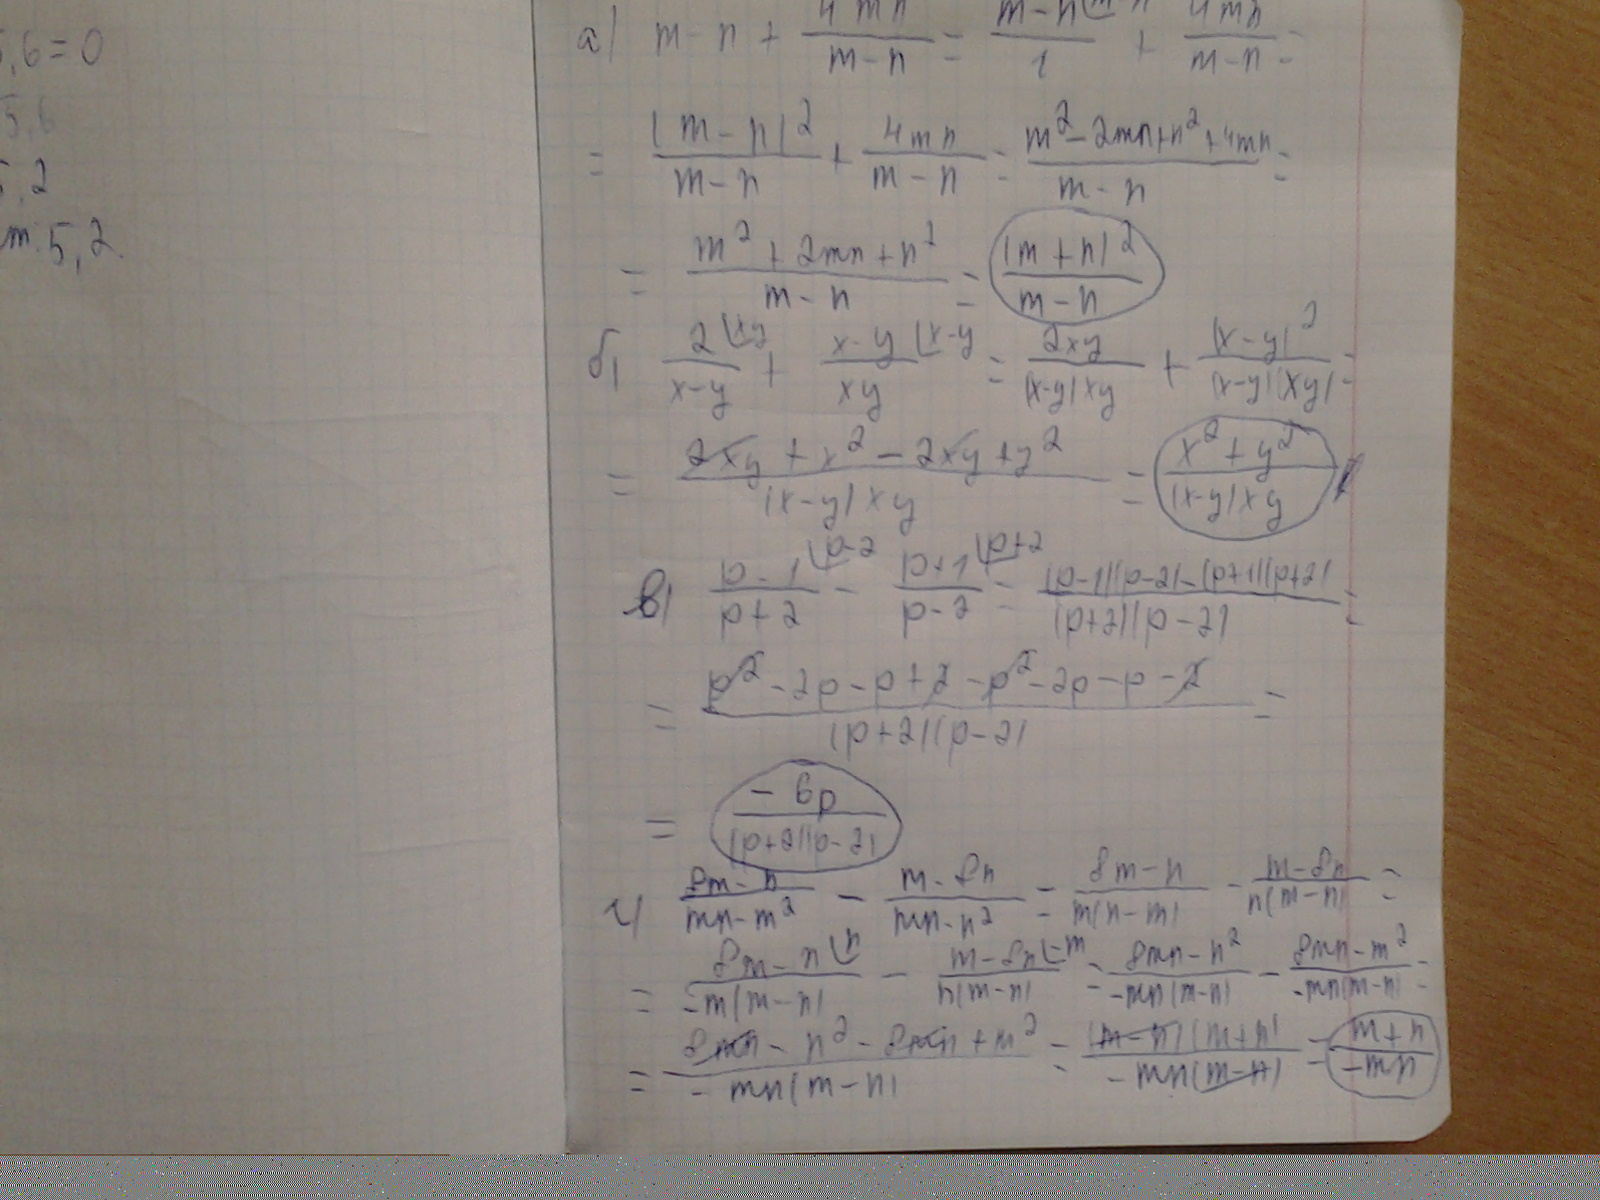 5,6=0
5,6
5,2
m. 5,2
а) m-n + 4mn/(m-n) = (m-n)/1 + 4mn/(m-n) =
= (m-n)²/(m-n) + 4mn/(m-n) = (m²-2mn+n²+4mn)/(m-n) =
= (m²+2mn+n²)/(m-n) = (m+n)²/(m-n)
б) 2/(x-y) + (x-y)/xy = 2xy/((x-y)xy) + (x-y)²/((x-y)(xy)) =
= (2xy+x²-2xy+y²)/((x-y)xy) = (x²+y²)/((x-y)xy)
в) (p-1)/(p+2) - (p+1)/(p-2) = ((p-1)(p-2)-(p+1)(p+2))/((p+2)(p-2)) =
= (p²-2p-p+2-p²-2p-p-2)/((p+2)(p-2)) =
= -6p/((p+2)(p-2))
г) (8m-n)/(mn-m²) - (m-8n)/(mn-n²) = (8m-n)/(m(n-m)) - (m-8n)/(n(m-n)) =
= (8m-n)/(-m(m-n)) - (m-8n)/(n(m-n)) = (8mn-n²)/(-mn(m-n)) - (8mn-m²)/(-mn(m-n)) =
= (8mn-n²-8mn+m²)/(-mn(m-n)) = ((m-n)(m+n))/(-mn(m-n)) = (m+n)/(-mn)